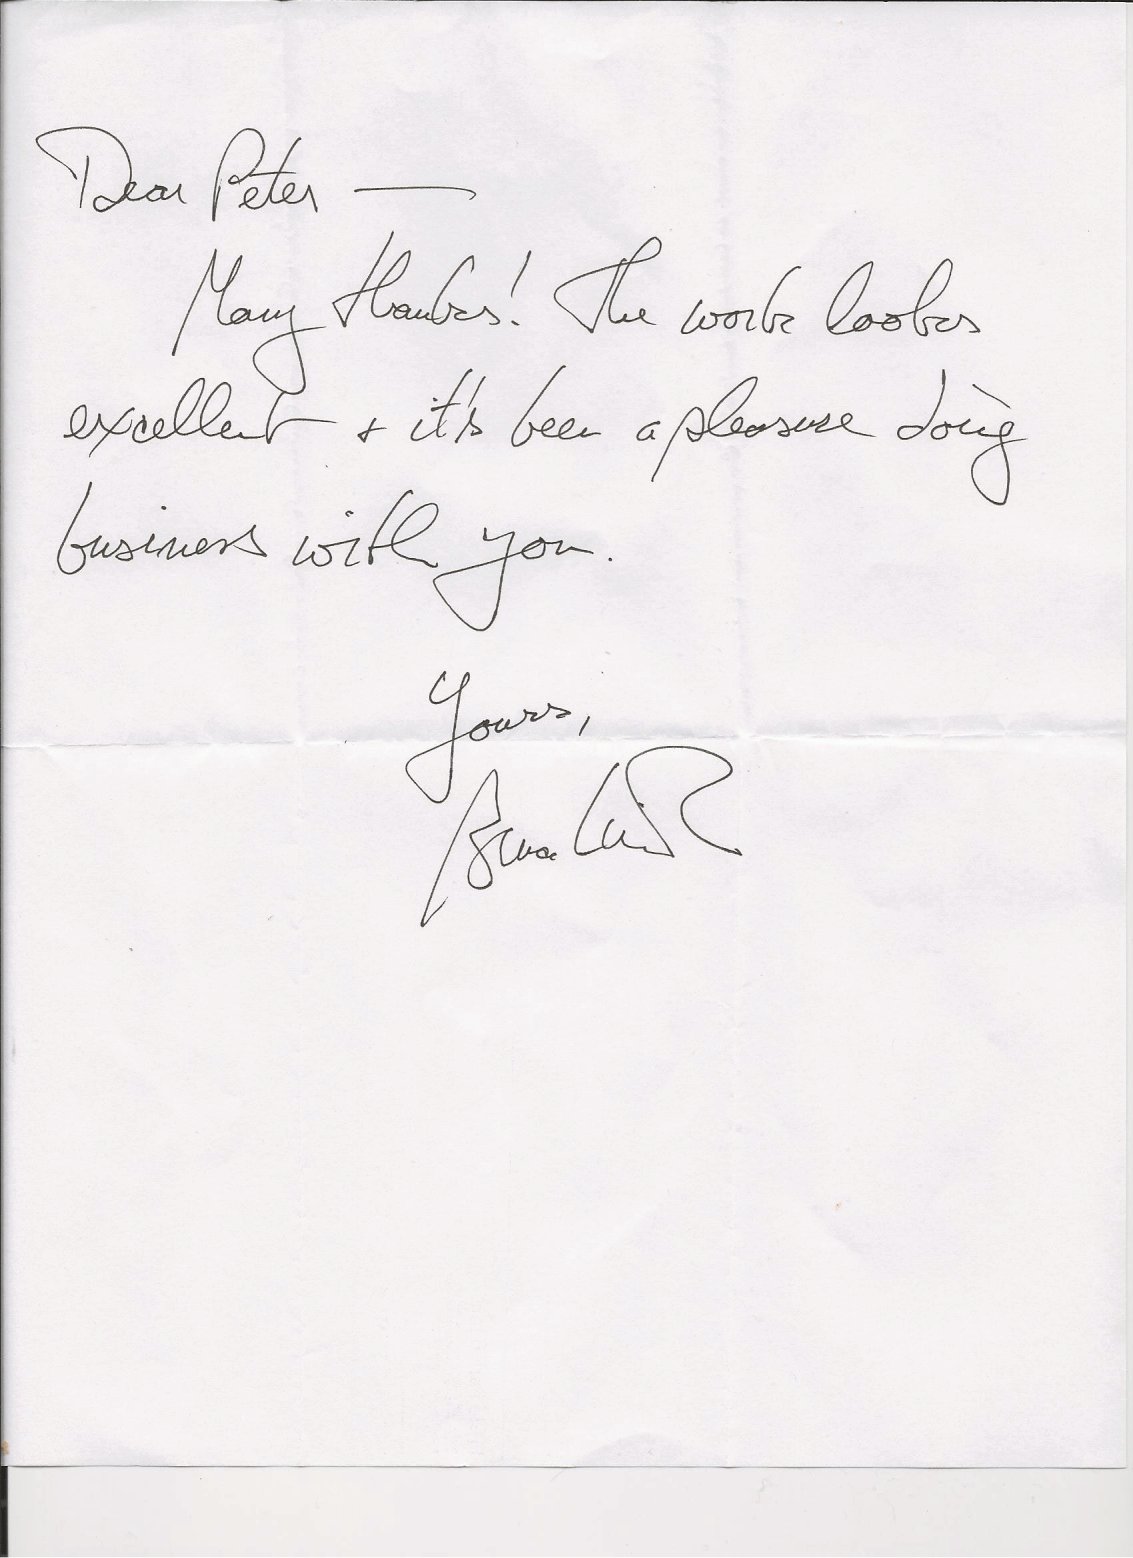 Dear Peter —
Many thanks! The work looks
excellent & it's been a pleasure doing
business with you.
Yours,